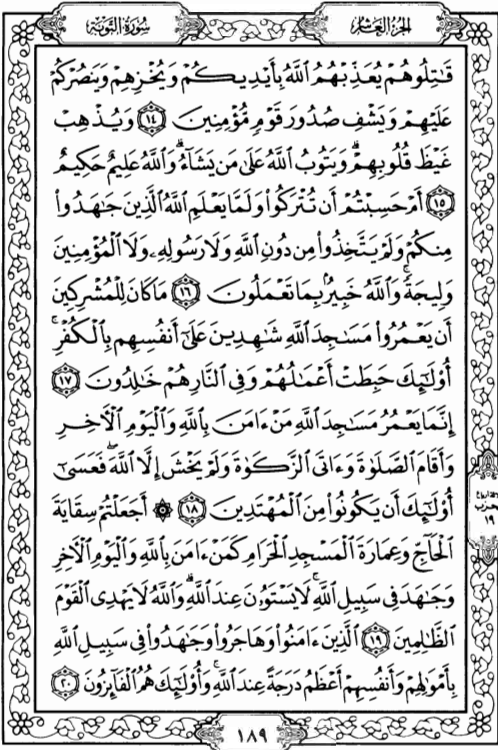 سُورَةُ التَّوْبَةِ
الجُزْءُ العَاشِرُ
قَـٰتِلُوهُمْ يُعَذِّبْهُمُ ٱللَّهُ بِأَيْدِيكُمْ وَيُخْزِهِمْ وَيَنصُرْكُمْ
عَلَيْهِمْ وَيَشْفِ صُدُورَ قَوْمٍ مُّؤْمِنِينَ ١٤ وَيُذْهِبْ
غَيْظَ قُلُوبِهِمْ ۗ وَيَتُوبُ ٱللَّهُ عَلَىٰ مَن يَشَآءُ ۗ وَٱللَّهُ عَلِيمٌ حَكِيمٌ
١٥ أَمْ حَسِبْتُمْ أَن تُتْرَكُوا۟ وَلَمَّا يَعْلَمِ ٱللَّهُ ٱلَّذِينَ جَـٰهَدُوا۟
مِنكُمْ وَلَمْ يَتَّخِذُوا۟ مِن دُونِ ٱللَّهِ وَلَا رَسُولِهِۦ وَلَا ٱلْمُؤْمِنِينَ
وَلِيجَةً ۚ وَٱللَّهُ خَبِيرٌۢ بِمَا تَعْمَلُونَ ١٦ مَا كَانَ لِلْمُشْرِكِينَ
أَن يَعْمُرُوا۟ مَسَـٰجِدَ ٱللَّهِ شَـٰهِدِينَ عَلَىٰٓ أَنفُسِهِم بِٱلْكُفْرِ ۚ
أُو۟لَـٰٓئِكَ حَبِطَتْ أَعْمَـٰلُهُمْ وَفِى ٱلنَّارِ هُمْ خَـٰلِدُونَ ١٧
إِنَّمَا يَعْمُرُ مَسَـٰجِدَ ٱللَّهِ مَنْ ءَامَنَ بِٱللَّهِ وَٱلْيَوْمِ ٱلْـَٔاخِرِ
وَأَقَامَ ٱلصَّلَوٰةَ وَءَاتَى ٱلزَّكَوٰةَ وَلَمْ يَخْشَ إِلَّا ٱللَّهَ ۖ فَعَسَىٰٓ
أُو۟لَـٰٓئِكَ أَن يَكُونُوا۟ مِنَ ٱلْمُهْتَدِينَ ١٨ ۞ أَجَعَلْتُمْ سِقَايَةَ
ٱلْحَآجِّ وَعِمَارَةَ ٱلْمَسْجِدِ ٱلْحَرَامِ كَمَنْ ءَامَنَ بِٱللَّهِ وَٱلْيَوْمِ ٱلْـَٔاخِرِ
وَجَـٰهَدَ فِى سَبِيلِ ٱللَّهِ ۚ لَا يَسْتَوُۥنَ عِندَ ٱللَّهِ ۗ وَٱللَّهُ لَا يَهْدِى ٱلْقَوْمَ
ٱلظَّـٰلِمِينَ ١٩ ٱلَّذِينَ ءَامَنُوا۟ وَهَاجَرُوا۟ وَجَـٰهَدُوا۟ فِى سَبِيلِ ٱللَّهِ
بِأَمْوَٰلِهِمْ وَأَنفُسِهِمْ أَعْظَمُ دَرَجَةً عِندَ ٱللَّهِ ۚ وَأُو۟لَـٰٓئِكَ هُمُ ٱلْفَآئِزُونَ ٢٠
١٩
١٨٩